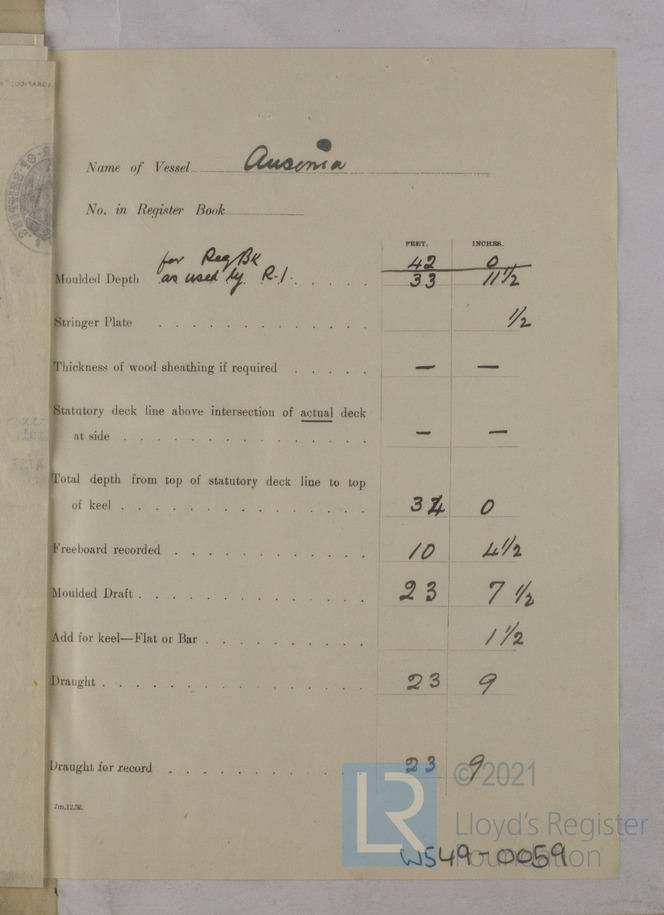 Name of Vessel Ausonia
No. in Register Book
FEET. INCHES.
for Reg Bk 42 0
Moulded Depth as used by R.I. 33 11 1/2
Stringer Plate 1/2
Thickness of wood sheathing if required — —
Statutory deck line above intersection of actual deck
at side — —
Total depth from top of statutory deck line to top
of keel 34 0
Freeboard recorded 10 4 1/2
Moulded Draft 23 7 1/2
Add for keel—Flat or Bar 1 1/2
Draught 23 9
Draught for record 23 9
2m,12,32.
© 2021
LR
Lloyd's Register
Foundation
WS49-0059